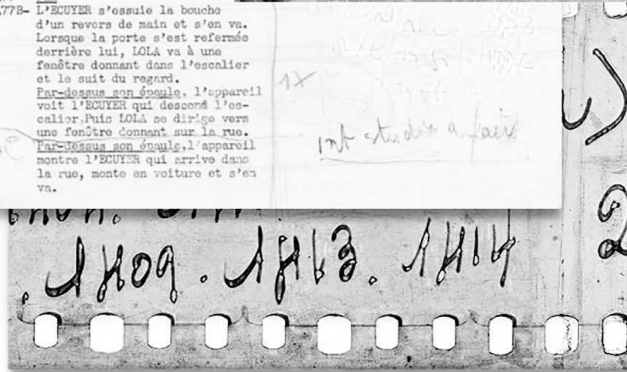 77B- L'ECUYER s'essuie la bouche
d'un revers de main et s'en va.
Lorsque la porte s'est refermée
derrière lui, LOLA va à une
fenêtre donnant dans l'escalier
et le suit du regard.
Par-dessus son épaule, l'appareil
voit l'ECUYER qui descend l'es-
calier.Puis LOLA se dirige vers
une fenêtre donnant sur la rue.
Par-dessus son épaule,l'appareil
montre l'ECUYER qui arrive dans
la rue, monte en voiture et s'en
va.
1X
Int studio
1H09. 1H13. 1H14
2